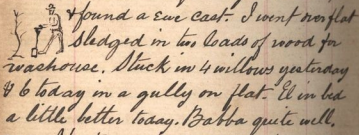 & found a Ewe cast. I went over flat
sledged in two loads of wood for
washouse. Stuck in 4 willows yesterday
& 6 today in a gully on flat. El in bed
a little better today. Babba quite well.